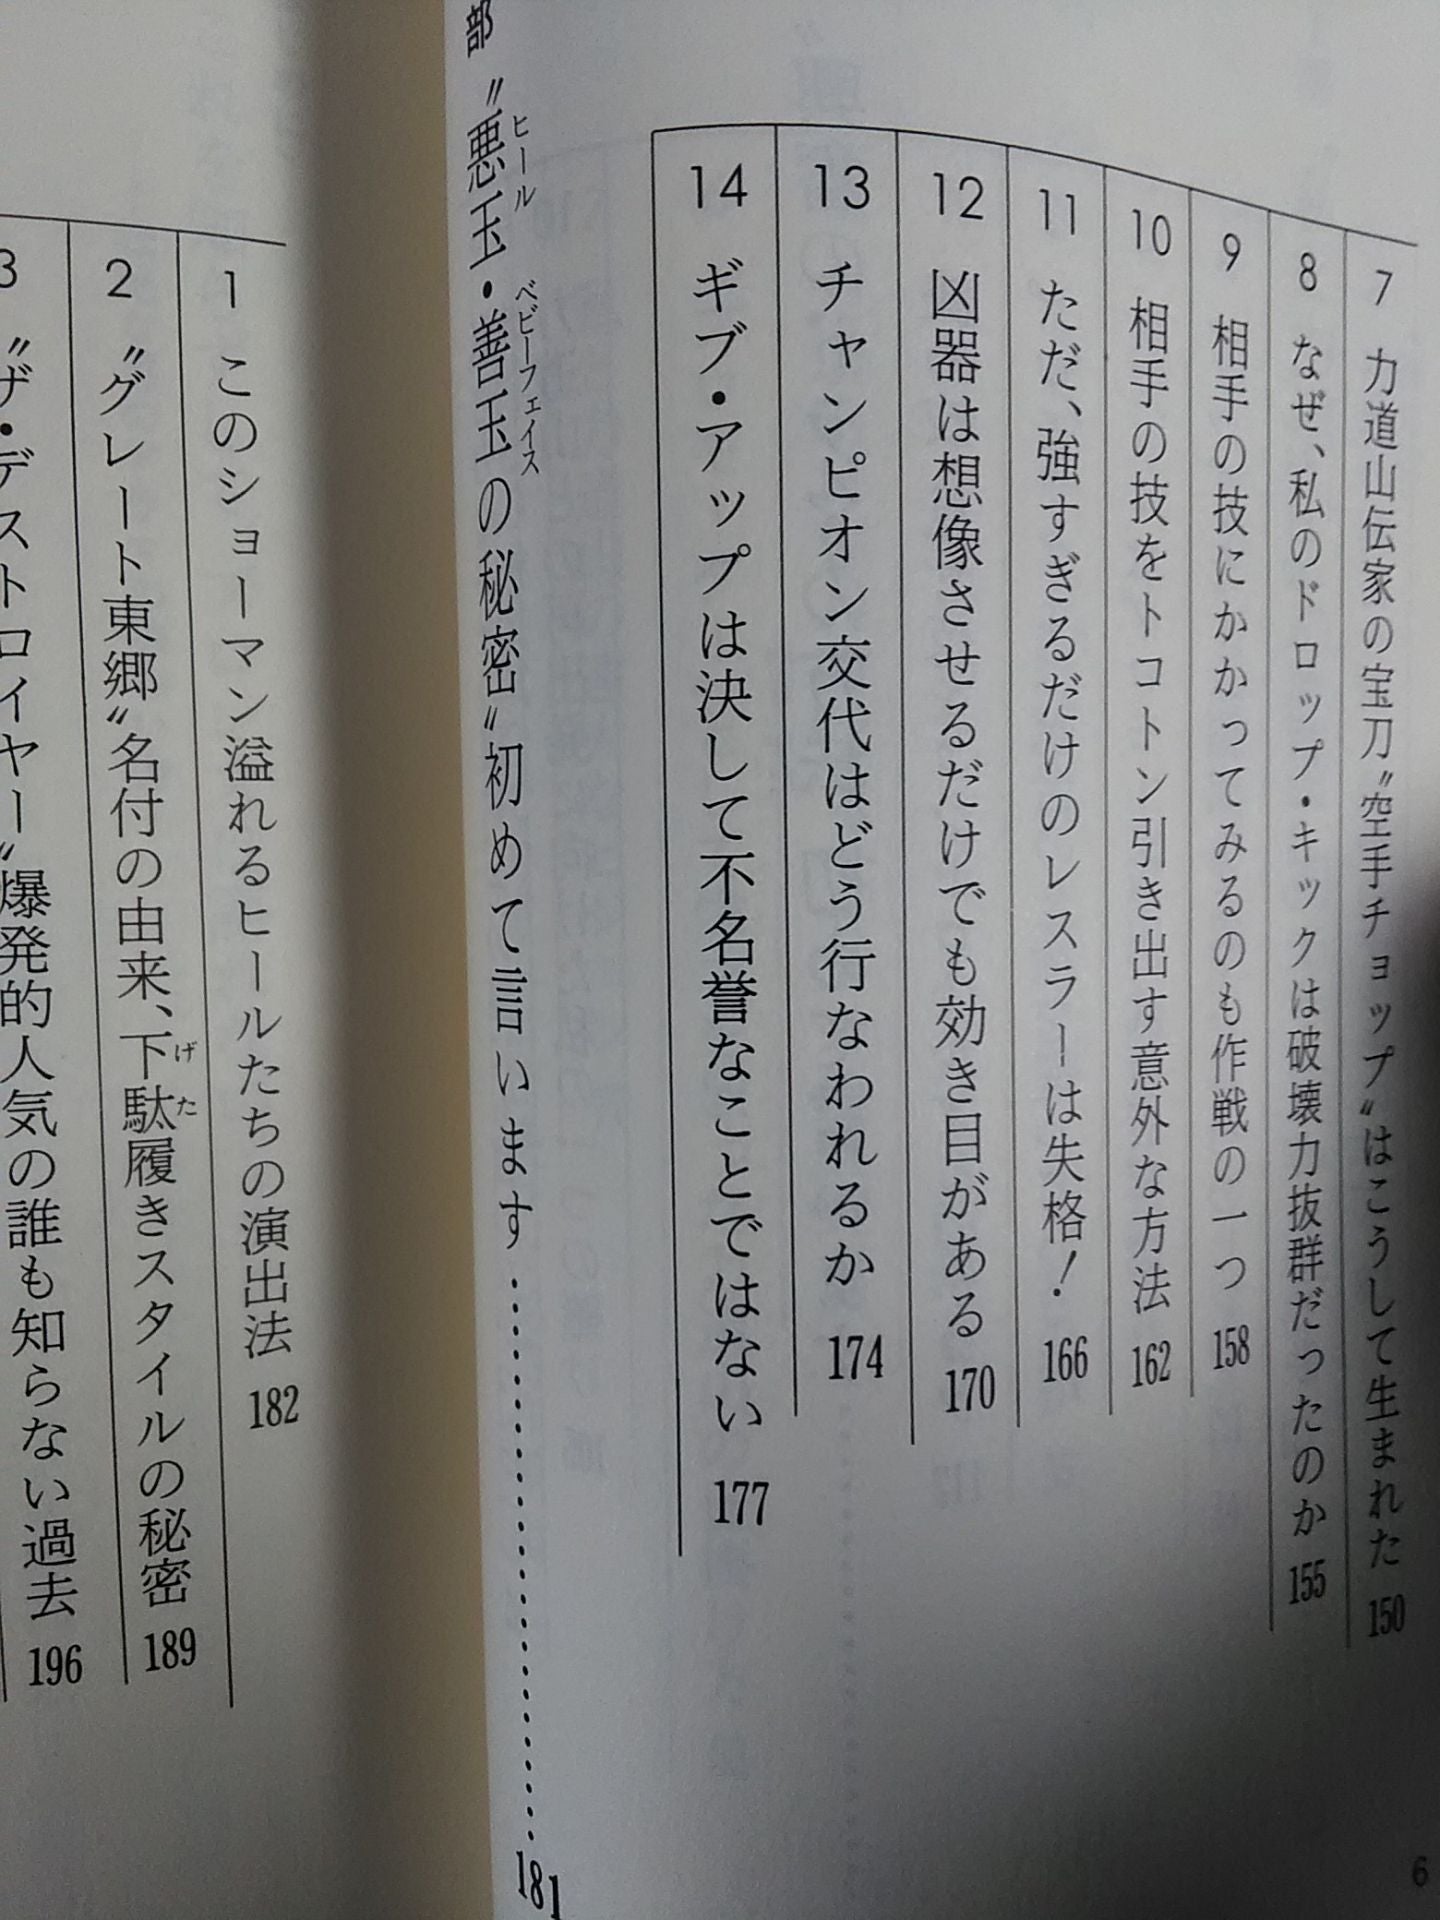 7 力道山伝家の宝刀〝空手チョップ〟はこうして生まれた 150
8 なぜ、私のドロップ・キックは破壊力抜群だったのか 155
9 相手の技にかかってみるのも作戦の一つ 158
10 相手の技をトコトン引き出す意外な方法 162
11 ただ、強すぎるだけのレスラーは失格! 166
12 凶器は想像させるだけでも効き目がある 170
13 チャンピオン交代はどう行なわれるか 174
14 ギブ・アップは決して不名誉なことではない 177
部 〝悪玉・善玉の秘密〟初めて言います 181
ヒール ベビーフェイス
1 このショーマン溢れるヒールたちの演出法 182
2 〝グレート東郷〟名付の由来、下駄履きスタイルの秘密 189
げた
3 〝ザ・デストロイヤー〟爆発的人気の誰も知らない過去 196
6